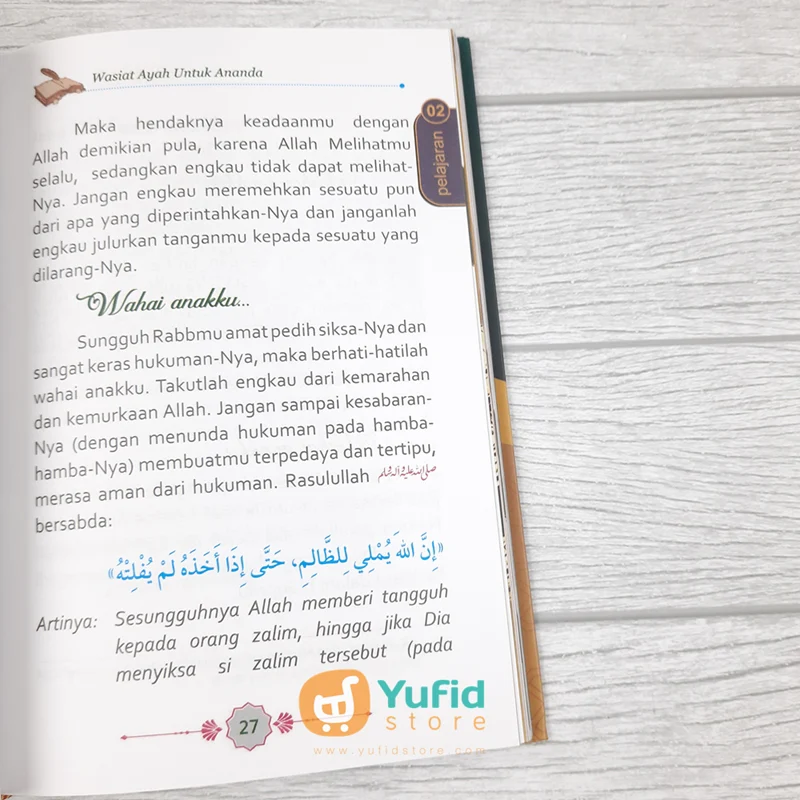 Wasiat Ayah Untuk Ananda
02
pelajaran
Maka hendaknya keadaanmu dengan
Allah demikian pula, karena Allah Melihatmu
selalu, sedangkan engkau tidak dapat melihat-
Nya. Jangan engkau meremehkan sesuatu pun
dari apa yang diperintahkan-Nya dan janganlah
engkau julurkan tanganmu kepada sesuatu yang
dilarang-Nya.
Wahai anakku...
Sungguh Rabbmu amat pedih siksa-Nya dan
sangat keras hukuman-Nya, maka berhati-hatilah
wahai anakku. Takutlah engkau dari kemarahan
dan kemurkaan Allah. Jangan sampai kesabaran-
Nya (dengan menunda hukuman pada hamba-
hamba-Nya) membuatmu terpedaya dan tertipu,
merasa aman dari hukuman. Rasulullah صلى الله عليه وآله وسلم
bersabda:
«إِنَّ اللهَ يُمْلِي لِلظَّالِمِ، حَتَّى إِذَا أَخَذَهُ لَمْ يُفْلِتْهُ»
Artinya: Sesungguhnya Allah memberi tangguh
kepada orang zalim, hingga jika Dia
menyiksa si zalim tersebut (pada
27
Yufid
store
www.yufidstore.com